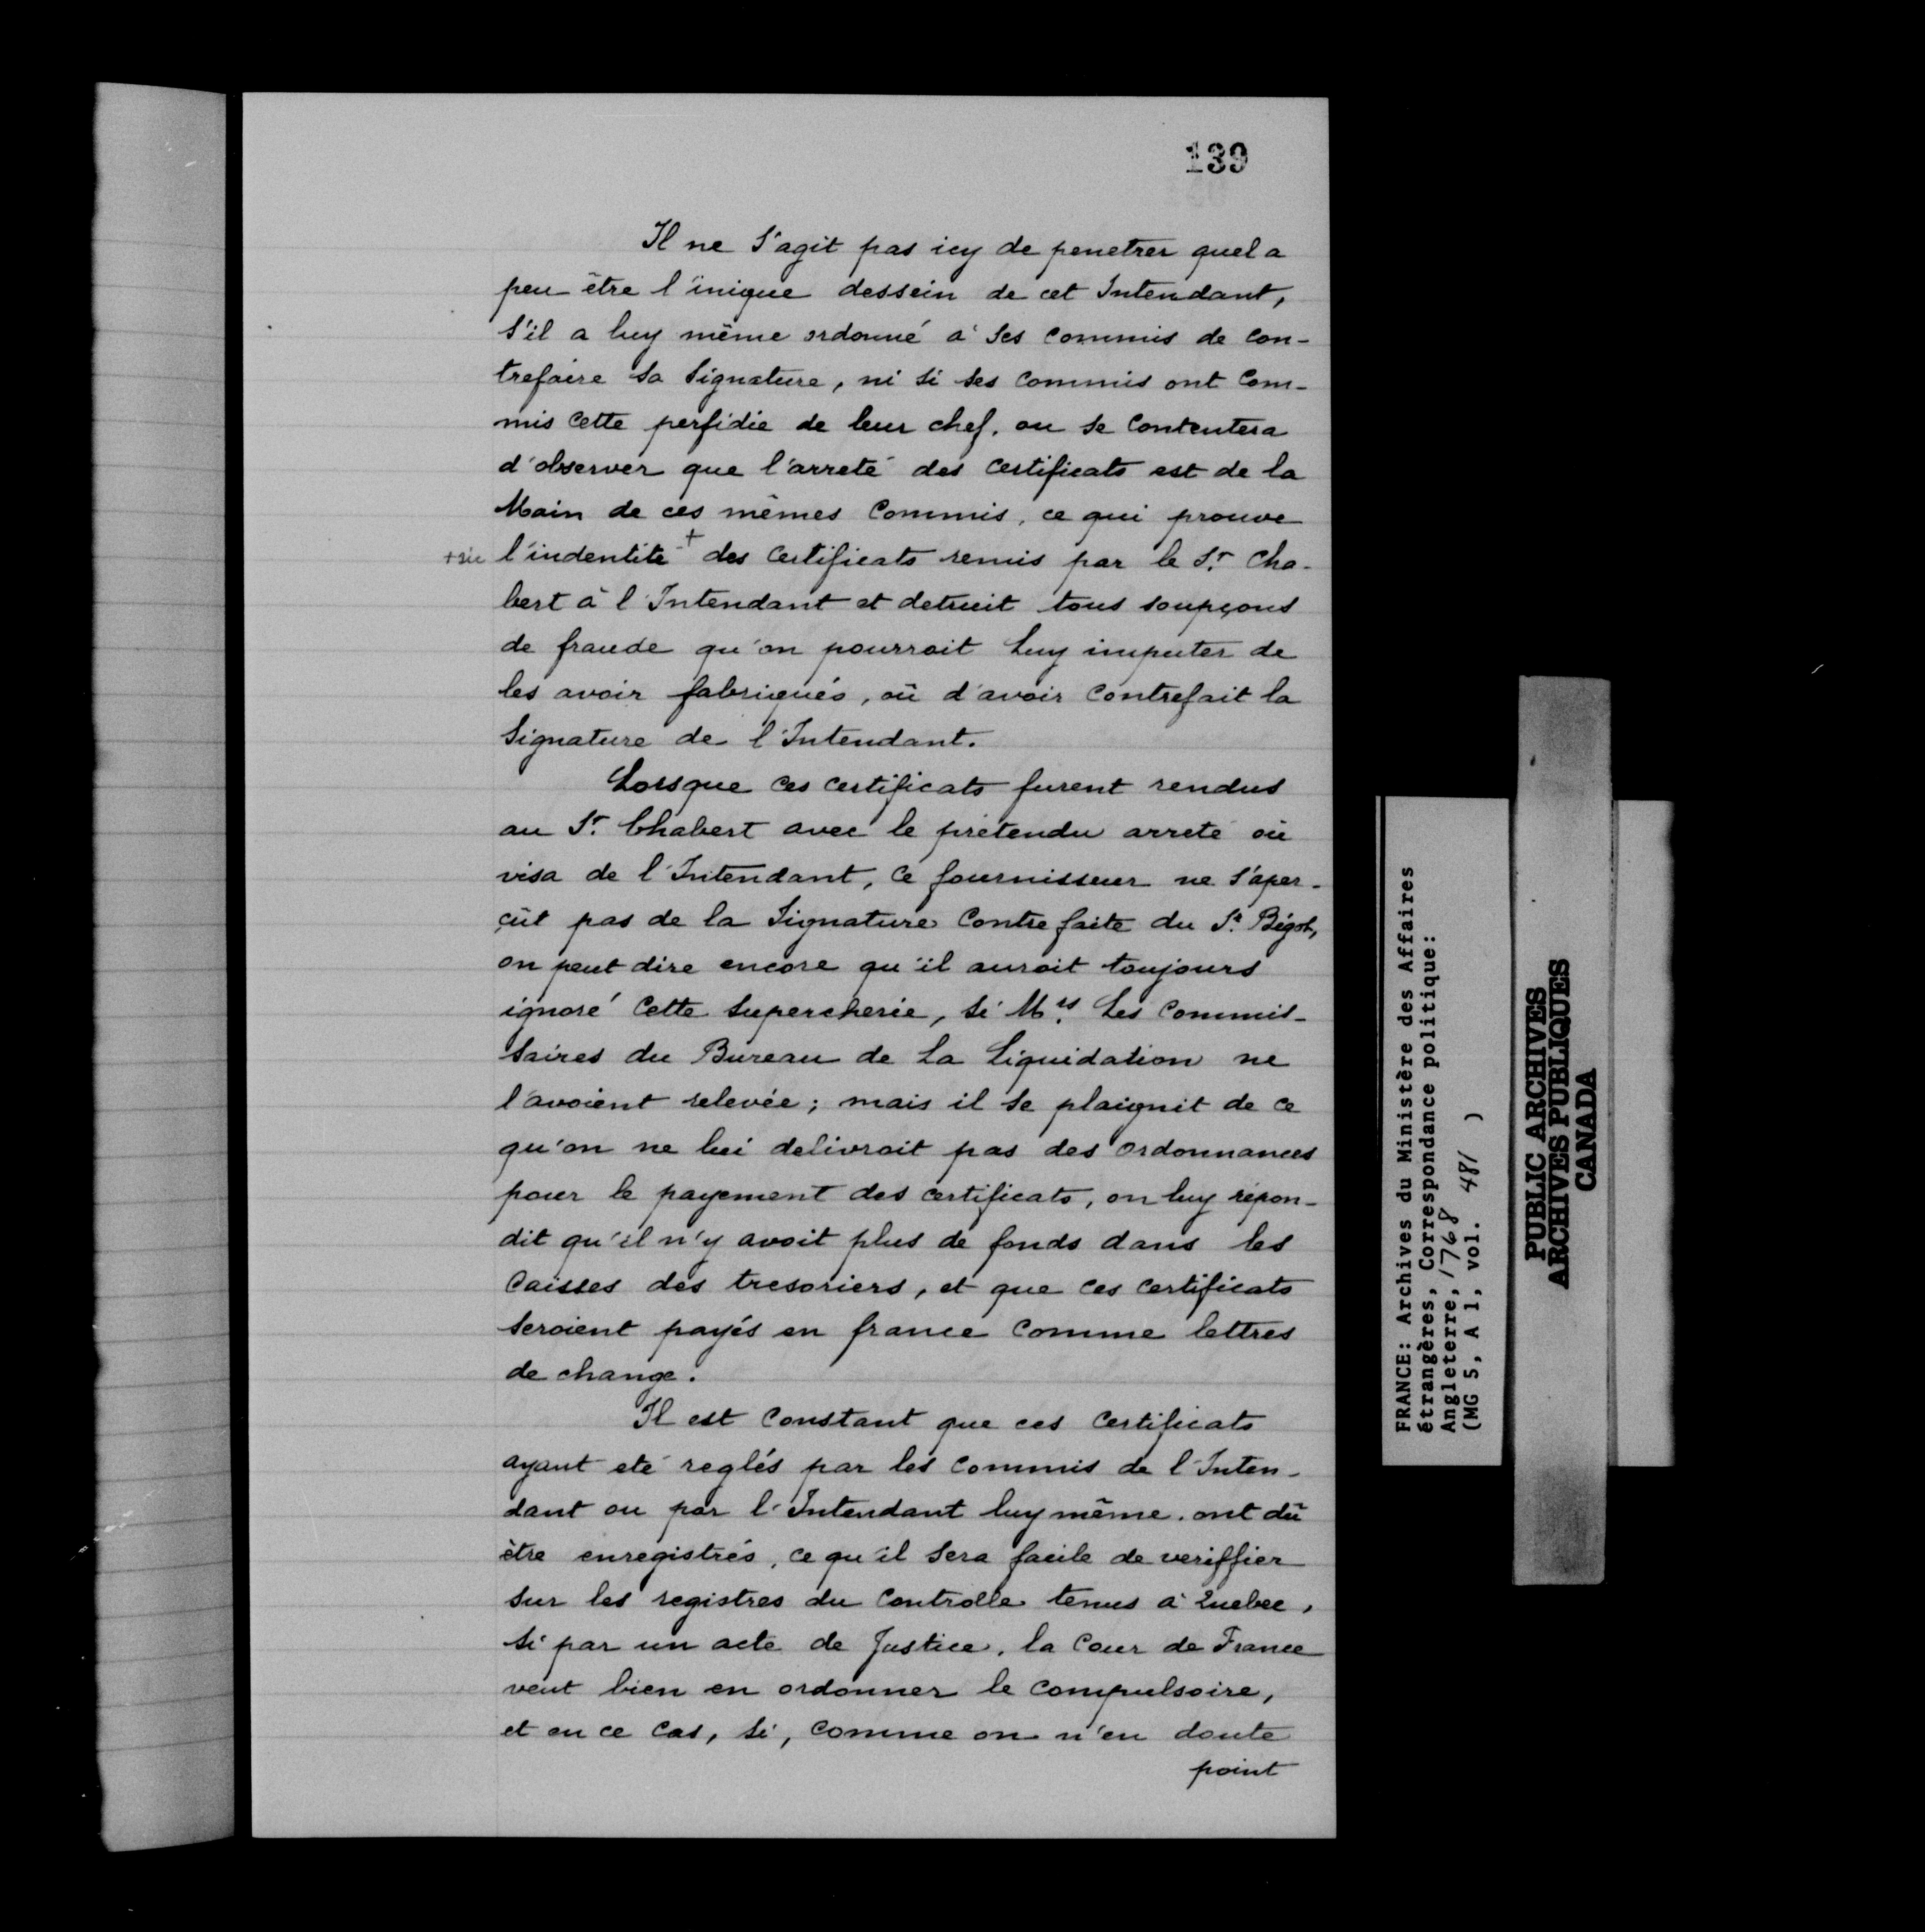 139
Il ne s'agit pas icy de penetrer quel a
peu être l'inique dessein de cet Intendant,
s'il a luy même ordonné à ses commis de con-
trefaire sa signature, ni si ses commis ont com-
mis cette perfidie de leur chef. on se contentera
d'observer que l'arreté des certificats est de la
Main de ces mêmes commis, ce qui prouve
+sic l'indentité + des certificats remis par le Sr. Cha-
bert à l'Intendant et detruit tous soupçons
de fraude qu'on pourroit luy imputer de
les avoir fabriqués, où d'avoir contrefait la
signature de l'Intendant.
Lorsque ces certificats furent rendus
au Sr. Chabert avec le prétendu arreté où
visa de l'Intendant, ce fournisseur ne s'aper-
çût pas de la signature contrefaite du Sr. Bégot,
on peut dire encore qu'il auroit toujours
ignoré cette supercherie, si Mrs. Les commis-
saires du Bureau de La Liquidation ne
l'avoient relevée; mais il se plaignit de ce
qu'on ne lui delivroit pas des ordonnances
pour le payement des certificats, on luy répon-
dit qu'il n'y avoit plus de fonds dans les
caisses des tresoriers, et que ces certificats
seroient payés en france comme lettres
de change.
Il est constant que ces certificats
ayant eté reglés par les commis de l'Inten-
dant ou par l'Intendant luy même. ont dû
être enregistrés, ce qu'il sera facile de veriffier
sur les registres du controlle tenus à Quebec,
si par un acte de Justice, la cour de France
veut bien en ordonner le compulsoire,
et en ce cas, si, comme on n'en doute
point
FRANCE: Archives du Ministère des Affaires
étrangères, Correspondance politique:
Angleterre, 1768
(MG 5, A 1, vol. 481 )
PUBLIC ARCHIVES
ARCHIVES PUBLIQUES
CANADA